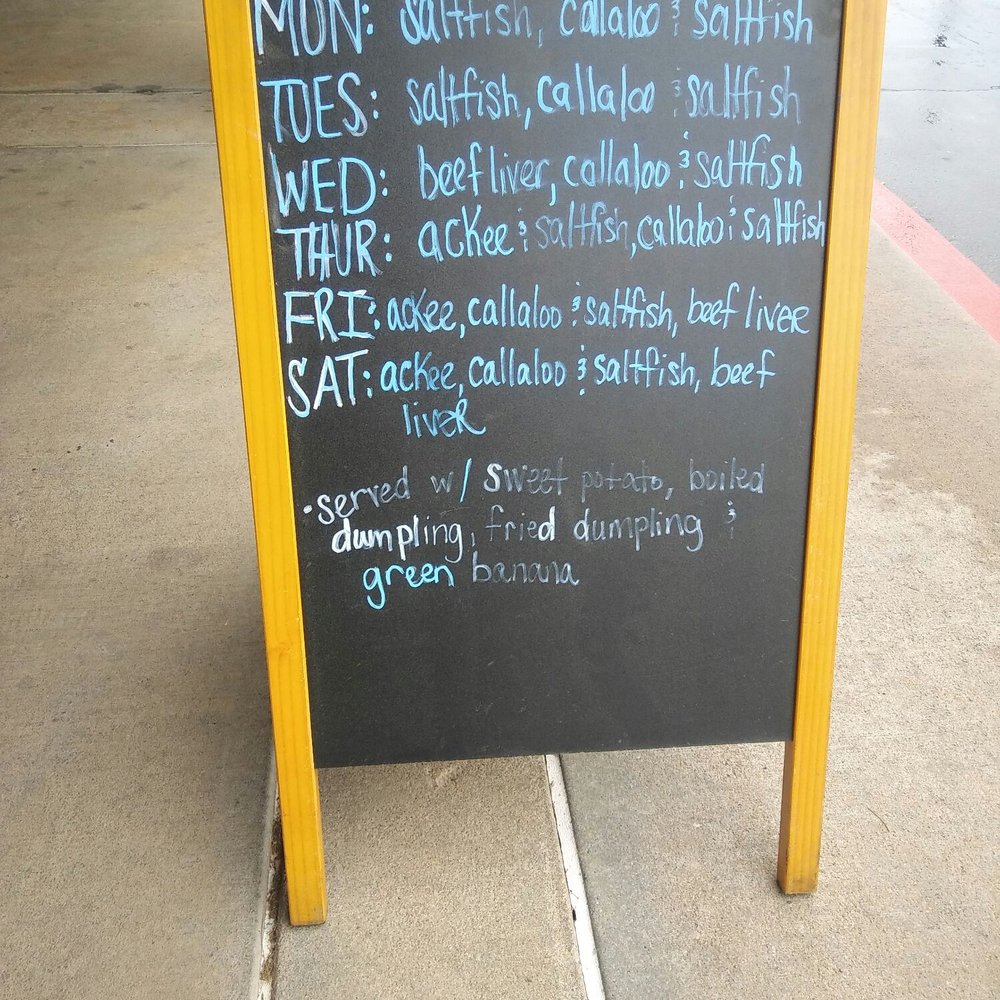 MON: saltfish, callaloo & saltfish
TUES: saltfish, callaloo & saltfish
WED: beef liver, callaloo & saltfish
THUR: ackee & saltfish, callaloo & saltfish
FRI: ackee, callaloo & saltfish, beef liver
SAT: ackee, callaloo & saltfish, beef
liver
• served w/ sweet potato, boiled
dumpling, fried dumpling &
green banana